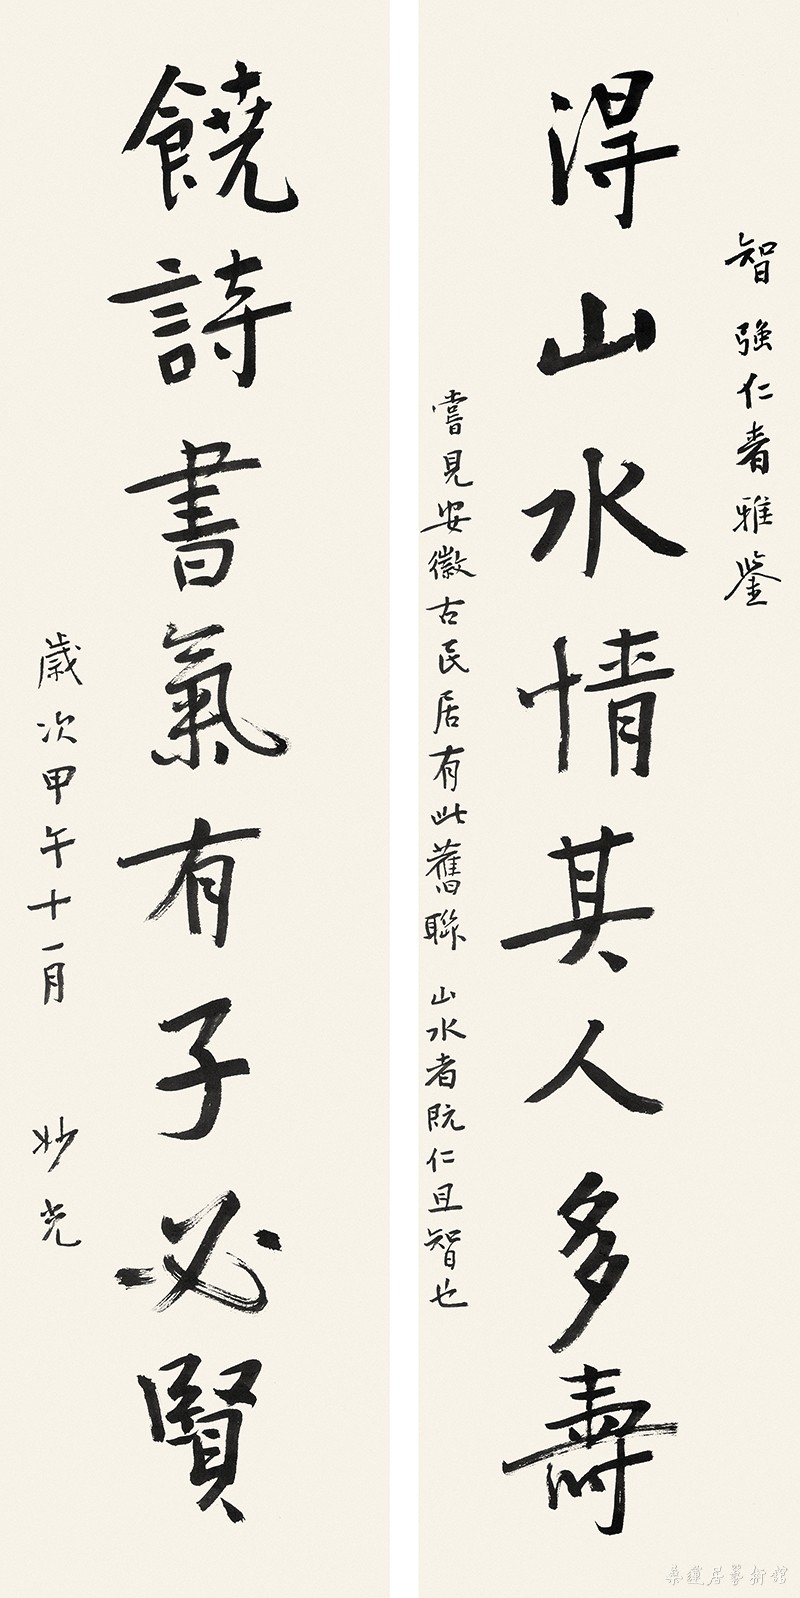 智強仁者雅鑒
得山水情其人多壽
嘗見安徽古民居有此舊聯 山水者既仁且智也
饒詩書氣有子必賢
歲次甲午十一月 妙光
桑蓮居藝術館